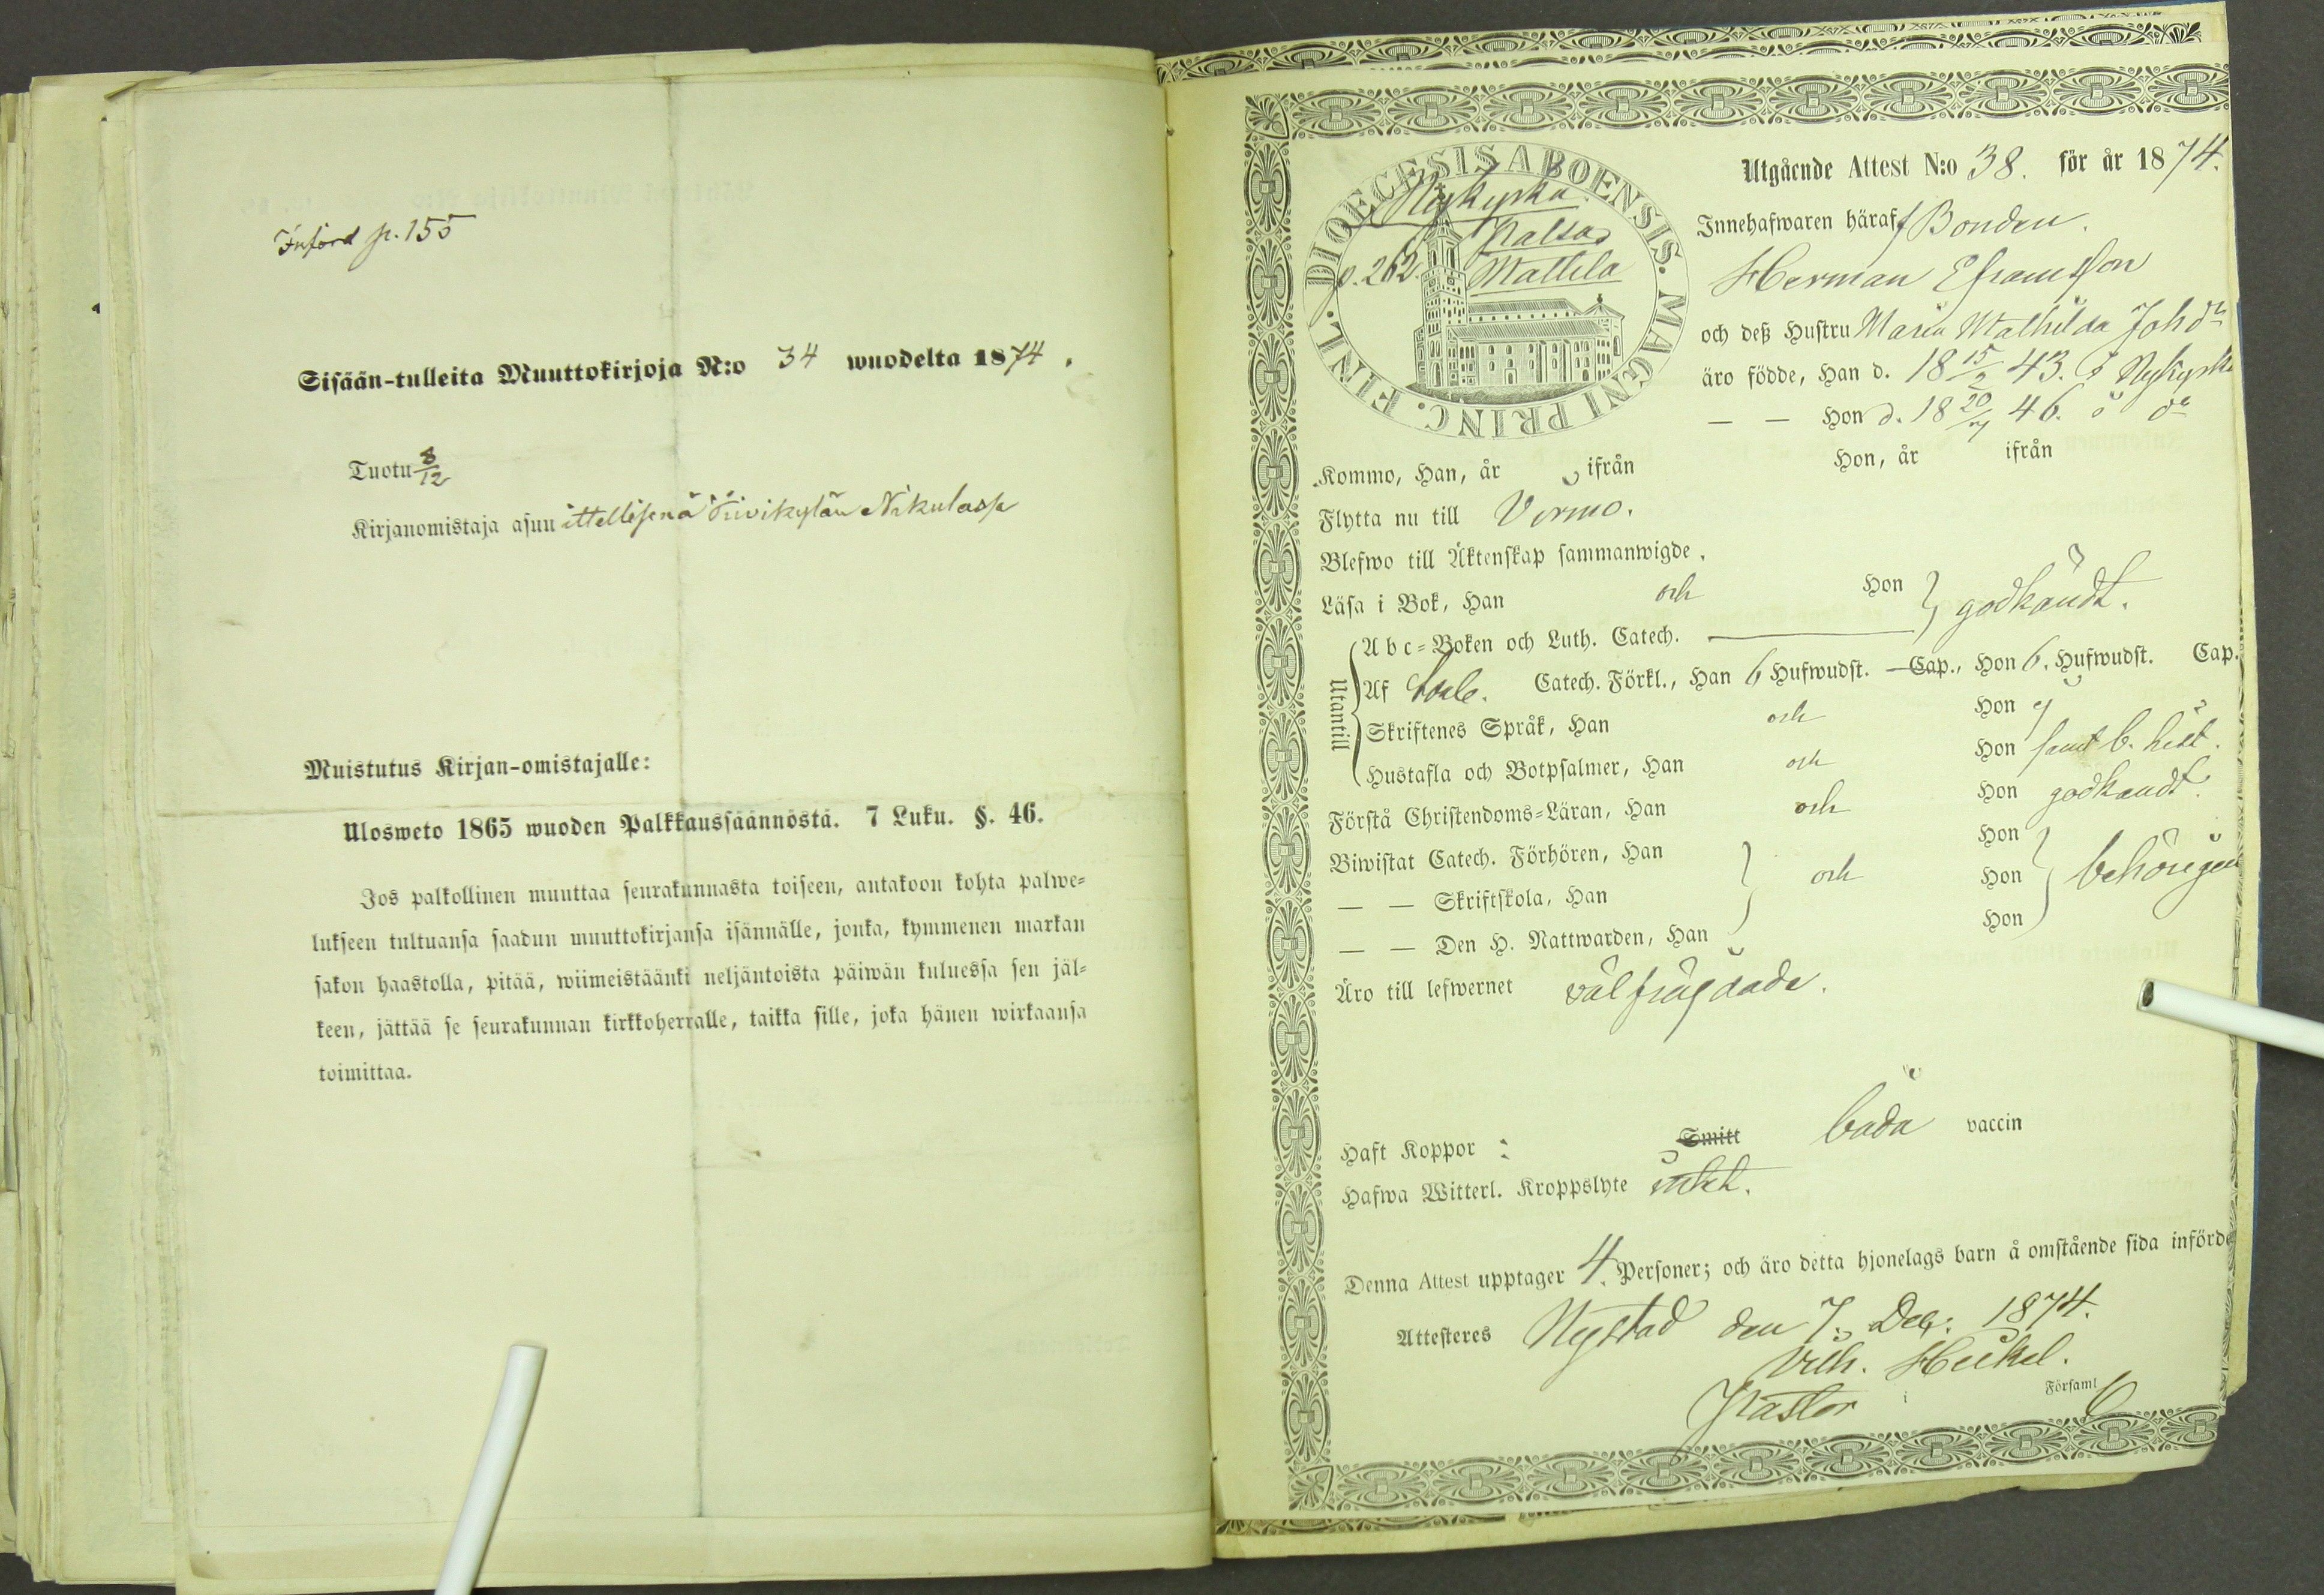 Införd p. 155
Sisään-tulleita Muuttokirjoja N:o 34 wuodelta 1874.
Tuotu 8/12
Kirjanomistaja asuu ittellisenä Nikulassa
Muistutus Kirjan-omistajalle:
Ulosweto 1865 wuoden Palkkaussäännöstä. 7 Luku. §. 46.
Jos palkollinen muuttaa seurakunnasta toiseen, antakoon kohta palwe-
lukseen tultuansa saadun muuttokirjansa isännälle, jonka, kymmenen markan
sakon haastolla, pitää, wiimeistäänki neljäntoista päiwän kuluessa sen jäl-
keen, jättää se seurakunnan kirkkoherralle, taikka sille, joka hänen wirkaansa
toimittaa.
DIOECESIS ABOENSIS. MAGNI PRINC. FINL.
Nykyrka
Kaltas
p. 262. Mattila
Utgående Attest N:o 38. för år 1874.
Innehafwaren häraf Bonden
Herman Efraimsson
och deß Hustru Maria Mathilda Johdr
äro födde, Han d. 18 15/2 43. i Nykyrka
— — Hon d. 18 20/7 46. i do
Kommo, Han, år ifrån Hon, år ifrån
Flytta nu till Virmo.
Blefwo till Äktenskap sammanwigde.
Läsa i Bok, Han och Hon } godkändt.
Utantill
Abc-Boken och Luth. Catech.
Af Catech. Förkl., Han 6 Hufwudst. Cap., Hon 6. Hufwudst. Cap.
Skriftenes Språk, Han och Hon ej
Hustafla och Botpsalmer, Han och Hon samt b. hist.
Förstå Christendoms-Läran, Han och Hon godkändt.
Biwistat Catech. Förhören, Han Hon
— — Skriftskola, Han och Hon behörigen
— — Den H. Nattwarden, Han Hon
Äro till lefwernet välfrägdade.
Haft Koppor: Smitt båda vaccin
Hafwa Witterl. Kroppslyte intet.
Denna Attest upptager 4. Personer; och äro detta hjonelags barn å omstående sida införde
Attesteres Nystad den 7. Dec. 1874.
Vilh. Heikel.
Pastor i Församl